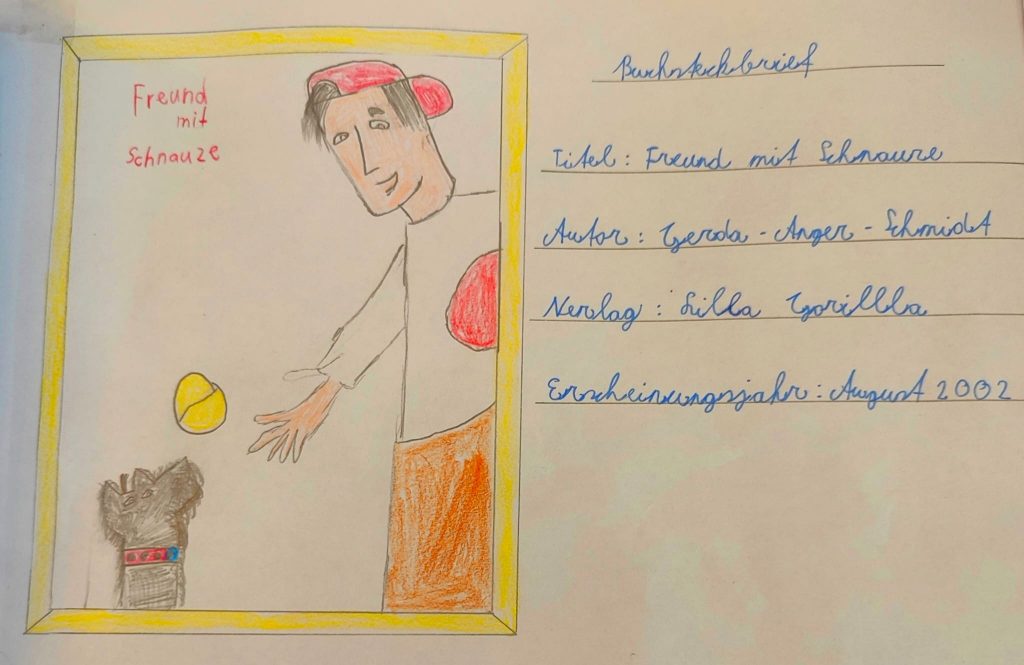 Freund
mit
Schnauze
Buchsteckbrief
Titel : Freund mit Schnauze
Autor : Gerda - Anger - Schmidt
Verlag : Lilla Gorilla
Erscheinungsjahr : August 2002